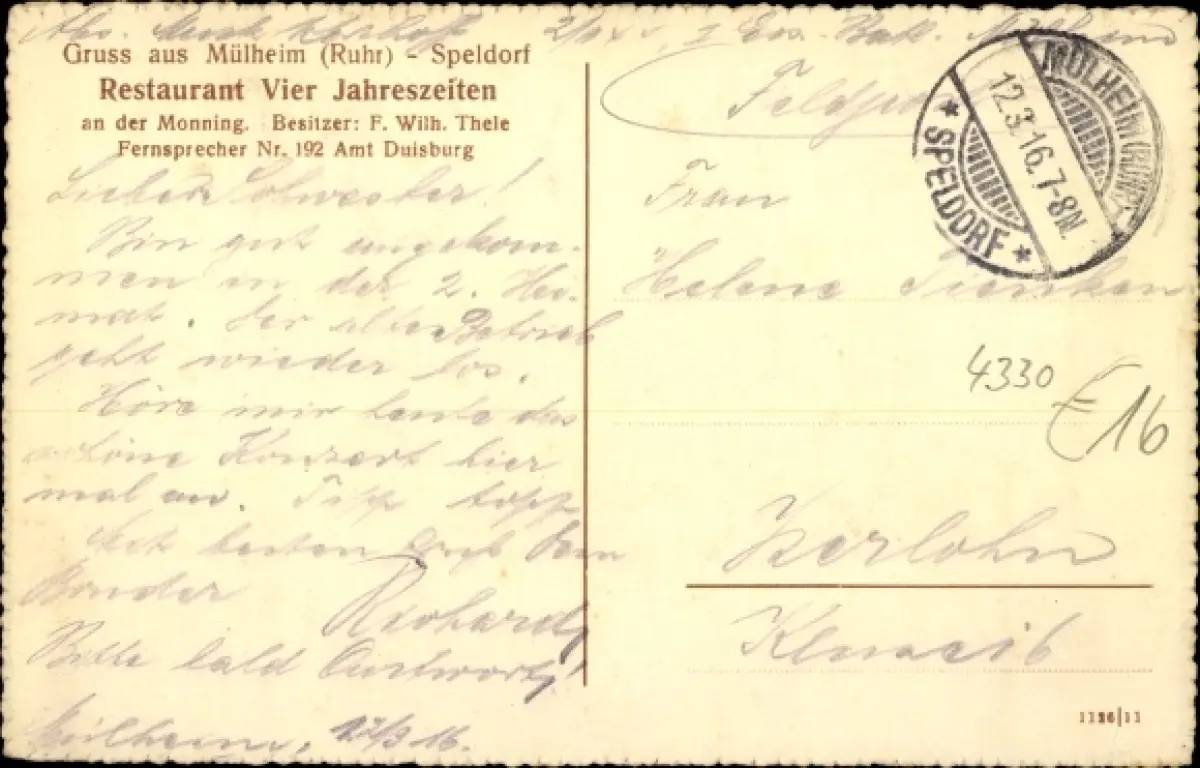 Gruss aus Mülheim (Ruhr) - Speldorf
Restaurant Vier Jahreszeiten
an der Monning. Besitzer: F. Wilh. Thele
Fernsprecher Nr. 192 Amt Duisburg
Liebe Schwester!
Bin gut angekom-
men in der 2. Hei-
mat. Der alte Betrieb
geht wieder los.
Höre mir heute das
schöne Konzert hier
mal an. Tipp topp
Mit besten Gruß Dein
Bruder Richard
Bitte bald Antwort!
Mülheim, 12/3 16.
Feldpost
MÜLHEIM (RUHR)
12.3.16.7-8N.
* SPELDORF *
Frau
Helene
4330
£16
Iserlohn
1126|11